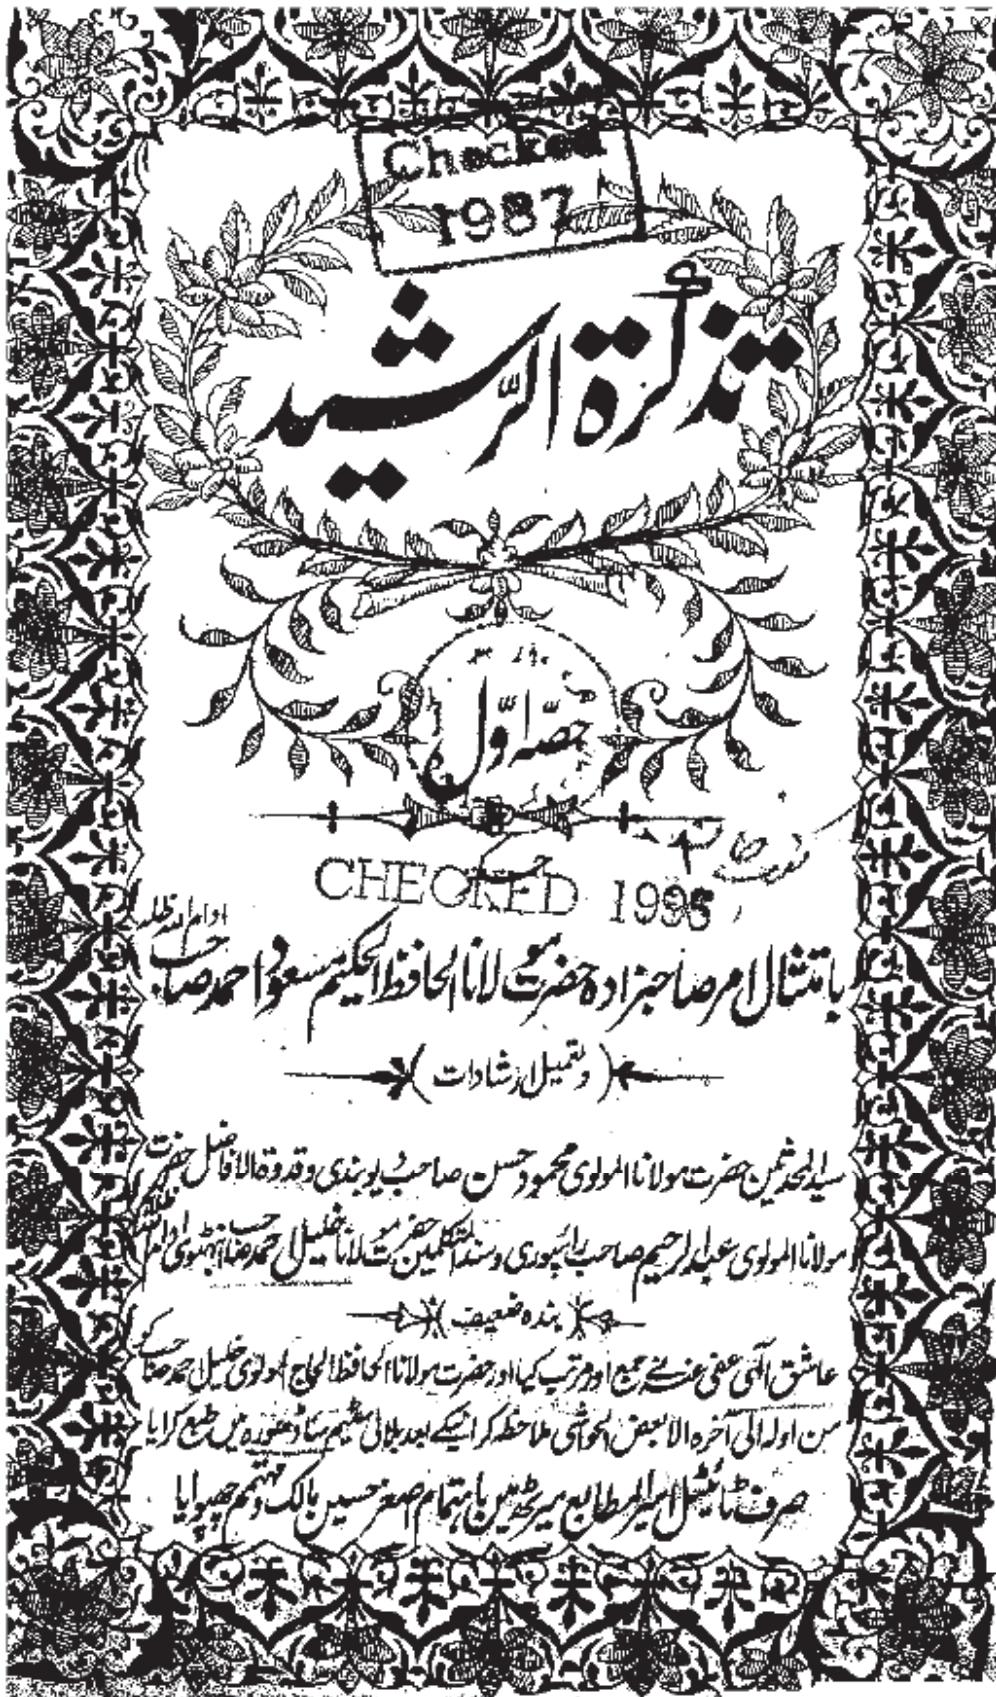 Checked
1987
تذکرۃ الرشید
حصّہ اوّل
CHECKED 1995
بامتثال امر صاحبزادہ حضرت مولانا الحافظ الحکیم مسعود احمد صاحب ادام اللہ ظلہ
(وتعمیل ارشادات)
سید المحدثین حضرت مولانا المولوی محمود حسن صاحب دیوبندی وقدوۃ الافاضل حضرت
مولانا المولوی عبدالرحیم صاحب رائپوری وسند المتکلمین حضرت مولانا خلیل احمد صاحب انبہٹوی دام اللہ
بندہ ضعیف
عاشق الٰہی عفی عنہ نے جمع اور مرتب کیا اور حضرت مولانا الحافظ الحاج المولوی خلیل احمد صاحب کو
من اولہ الی آخرہ الا بعض الحواشی ملاحظہ کرا نیکے بعد بلالی سٹیم ساڈھورہ میں طبع کرایا
صرف ٹائیٹل اسیر المطابع میرٹھ میں باہتمام اصغر حسین مالک ومہتمم چھپوایا